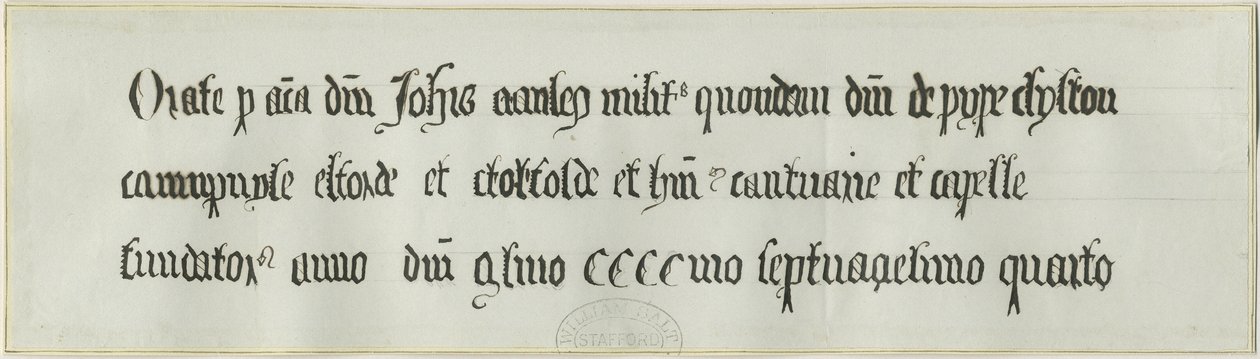 Orate p aīa dm̄ Johis aanley milit⁹ quondam dm̄ de pype clyfton
campvyle elforde et stotfolde et hm̄ cantuarie et capelle
fundator anno dm̄ mlimo CCCCmo septuagesimo quarto
WILLIAM SALT
STAFFORD